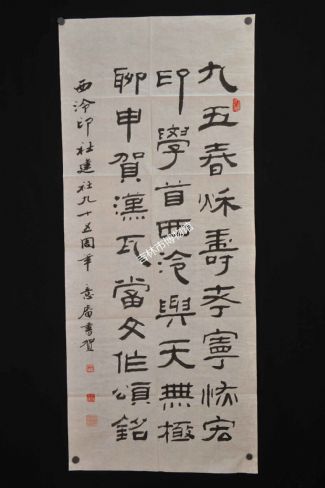 九五春秌壽考寧恢宏
印學首西泠與天無極
聊申賀漢瓦當文作頌銘
西泠印社建社九十五周年 意庵書賀
吉林市博物馆